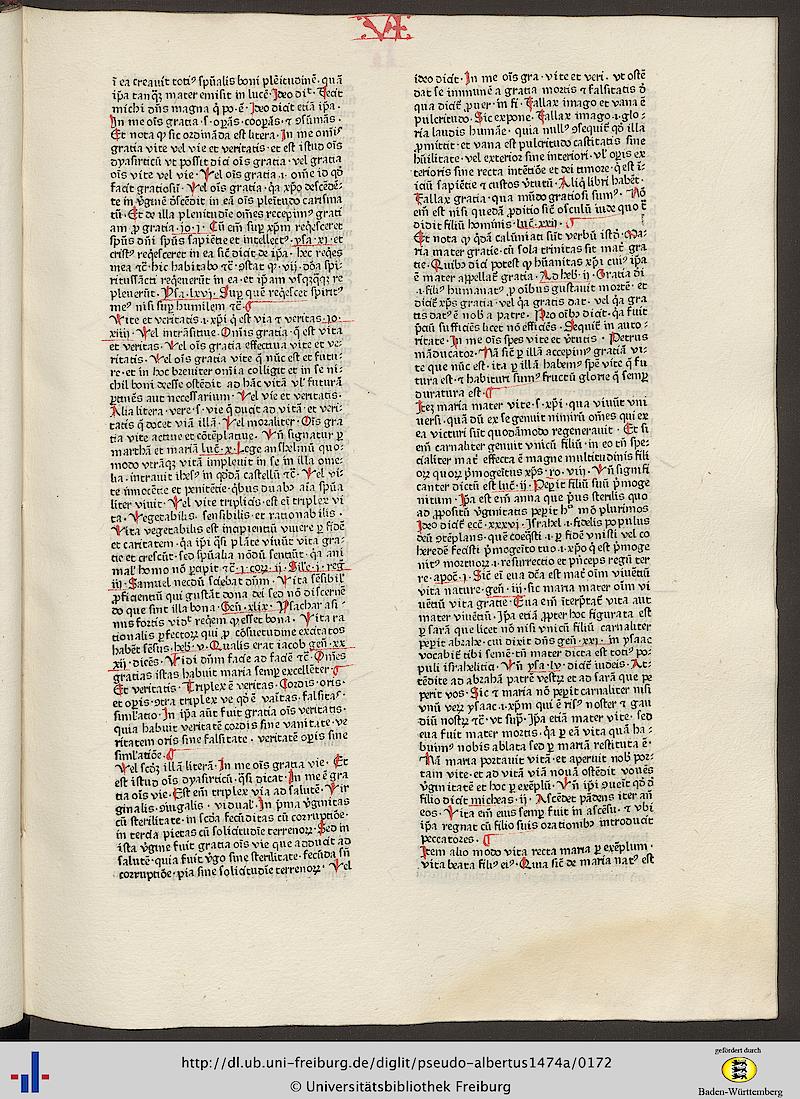 VI
ī ea creauit totiꝰ spūalis boni plēitudinē. quā
ip̄a tanqͣꝫ mater emisit in lucē. Ideo dīt. Fecit
michi dn̄s magna q̄ po.ē. Ideo dicit etiā ip̄a.
In me oīs gratia .s. opās. coopās. ⁊ ɔsūmās.
Et nota q̄ sic ordināda est litera. In me omīs
gratia vite vel vie et veritatis. et est istud oīs
dyasirticū vt possit dici oīs gratia. vel gratia
oīs vite vel vie. Vel oīs gratia .i. om̄e id qd̓
facit gratiosū. Vel oīs gratia. qꝛ xp̄o descēdē-
te in v̓ginē ɔscēdit in eā oīs plēitudo carismatū
tū. Et de illa plenitudie om̄es recepimꝰ grati
am ꝓ gratia .io.i. Cū em̄ suꝑ xp̄m reqͥesceret
spūs dn̄i spūs sapiētie et intellectꝰ. ysa.xi. et
cristꝰ reqͥesceret in ea sic̄ dicit de ip̄a. hec reqͥes
mea ⁊c̄ hic habitabo ⁊c̄. ɔstat q̄. vij. dōa spi-
ritussācti reqͥeuerūt in ea. et ip̄am vsqͣꝫqꝫ re
pleuerūt. Psa.lxvj. Suꝑ quē reqͥescet spiritꝰ
meꝰ nisi suꝑ humilem ⁊c̄.
Vite et veritatis .i. xp̄i q̄ est via ⁊ veritas. io.
xiiij. Vel intrāsitiue. Om̄is gratia .q̄ est vita
et veritas. Vel oīs gratia effectiua vite et ve-
ritatis. Vel oīs gratia vite q̄ nūc est et futu-
re. et in hoc breuiter om̄ia colligit et in se ni-
chil boni deesse ostēdit ad hāc vitā vl̓ futurā
ꝑtinēs aut necessarium. Vel vie et veritatis.
Alia litera. vere .s. vie q̄ ducit ad vitā. et veri-
tatis q̄ docet viā illā. Vel moraliter. Oīs gra
tia vite actiue et cōtēplatiue. Vn̄ signatur ꝑ
marthā et mariā luc̄.x. Lege anshelmū quo-
modo vtrāqꝫ vitā impleuit in se in illa ome-
lia. intrauit ihesꝰ in qd̓dā castellū ⁊c̄. Vel vi-
te īnocētie et penitētie. qͥbus duabꝰ aīa spūa
liter viuit. Vel vite triplicis. est eī triplex vi
ta. Vegetabilis. sensibilis. et rationabilis.
Vita vegetabilis est incipientiū viuere ꝑ fidē
et caritatem. qꝛ ip̄i qͣsi plāte viuūt vita gra-
tie et crescūt. sed spūalia nōdū sentiūt. qꝛ ani
mal̓ homo nō ꝑcipit ⁊c̄. j. cor̄.ij. Sil̓e. j. reg̅
iij. Samuel necdū sciebat dn̄m. Vita sēsibil̓
ꝓficientiū qui gustāt dona dei sed nō discernē
do que sint illa bona. Gen̄.xlix. Ysachar asi-
nus fortis vidꝫ reqͥem q̄ esset bona. Vita ra
tionalis ꝑfectoꝝ qui ꝓ cōsuetudine excitatos
habēt sēsus. heb̓.v. Qualis erat iacob gen̄.xx
xij. dicēs. Vidi dn̄m facie ad faciē ⁊c̄. Om̄es
gratias istas habuit maria semꝑ excellēter.
Et veritatis. Triplex ē veritas. Cordis. oris.
et opis. ɔtra triplex ve qd̓ ē vaītas. falsitas.
simlatio. In ip̄a aūt fuit gratia oīs veritatis.
quia habuit veritatē cordis sine vanitate. ve
ritatem oris sine falsitate. veritatē opis sine
simlatiōe.
Vel scd̓ꝫ illā literā. In me oīs gratia vie. Et
est istud oīs dyasirticū. qͣsi dicat. In me ē gra
tia oīs vie. Est em̄ triplex via ad salutē. Vir
ginalis. ɔiugalis. vidual̓. In p̄ma v̓ginitas
cū sterilitate. in scd̓a fecūditas cū corruptiōe.
in tercia pietas cū solicitudīe terrenoꝝ. Sed in
ista v̓gine fuit gratia oīs vie que adducit ad
salutē. quia fuit v̓go sine sterilitate. fecūda sn̄
corruptiōe. pia sine solicitudīe terrenoꝝ. Vel
ideo dicit. In me oīs gra. vite et veri. vt ostē
dat se immunē a gratia mortis ⁊ falsitatis d̓
qua dicit̄ ꝓuer. in fi. Fallax imago et vana ē
pulcritudo. Sic expone. Fallax imago .i. glo-
ria laudis humāe. quia nullꝰ ɔsequit̄ qd̓ illa
ꝓmittit. et vana est pulcritudo castitatis sine
hūilitate. vel exterior sine interiori. vl̓ opis ex
terioris sine recta intētiōe et dei timore. q̄ est ī-
iciū sapiētie ⁊ custos v̓tutū. Aliqͥ libri habēt.
Fallax gratia. qua mūdo gratiosi sumꝰ. Nō
em̄ est nisi quedā ꝓditio sic̄ osculū iude quo t̄
didit filiū hominis. luc̄.xxij.
Et nota q̄ qd̓ā calūniāt sūt verbū istd̓. Ma-
ria mater gratie. cū sola trinitas sit mat̓ gra
tie. Quibꝰ dici potest q̄ hūanitas xp̄i cuiꝰ ip̄a
ē mater appellat̄ gratia. Ad heb̓.ij. Gratia dī
.i. filiꝰ humanatꝰ. ꝓ oībus gustauit mortē. et
dicit̄ xp̄s gratia. vel qꝛ gratis dat̓. vel qꝛ gra
tis datꝰ ē nob̓ a patre. Pro oībꝰ dicit. qꝛ fuit
p̄ciū sufficiēs licet nō efficiēs. Sequit̄ in auto-
ritate. In me oīs spes vite et v̓tutis. Petrus
māducator. Nā sic̄ ꝑ illā accepimꝰ gratiā vi-
te que nūc est. ita ꝑ illā habemꝰ spē vite q̄ fu
tura est ⁊ habituri sumꝰ fructū glorie q̄ semꝑ
duratura est.
Itē maria mater vite .s. xp̄i. qua viuūt vni
uersi. quā dū ex se genuit nimirū om̄es qui ex
ea victuri sūt quodāmodo regenerauit. Et si
em̄ carnaliter genuit vnicū filiū. in eo tn̄ spe-
cialiter mat̓ effecta ē magne multitudinis fili
oꝝ quoꝝ p̄mogeitus xp̄s. ro.viij. Vn̄ signifi
canter dicitur est luc̄.ij. Peꝑit filiū suū p̄moge
nitum. Ip̄a est em̄ anna que pͥus sterilis quo
ad ꝓpositū v̓ginitatis peꝑit hꝰ mō plurimos
Ideo dicit̄ ecc̄.xxxvi. Israhel .i. fidelis populus
deū ɔtēplans. quē coeqͣsti .i. ꝑ fidē vnisti vel co
heredē fecisti p̄mogeito tuo .i. xp̄o q̄ est p̄moge
nitꝰ mortuoꝝ .i. resurrectio et pͥnceps regū ter
re. apoc̄.i. Sic̄ eī eua dc̄a est mat̓ oīm viuētiū
vita nature. gen̄.iij. sic maria mater oīm vi
uētiū vita gratie. Eua em̄ iterp̄tat̄ vita aut
mater viuētiū. Ip̄a etiā ꝓpter hoc figurata est
ꝑ sarā que licet nō nisi vnicū filiū carnaliter
peꝑit abrahe. cui dixit dn̄s gen̄.xxi. in ysaac
vocabit̄ tibi semē. tn̄ mater dicta est totiꝰ po-
puli israhelitici. Vn̄ ysa.lv. dicit̄ iudeis. At-
tēdite ad abrahā patrē vestrꝫ et ad sarā que pe
perit vos. Sic ⁊ maria nō peꝑit carnaliter nisi
vnū verꝫ ysaac .i. xp̄m qui ē risꝰ noster ⁊ gau
diū nostrꝫ ⁊c̄. vt supͣ. Ip̄a etiā mater vite. sed
eua fuit mater mortis. qꝛ ꝑ eā vita quā ha-
buimꝰ nobis ablata sed ꝑ mariā restituta ē.
Nā maria portauit vitā. et aperuit nob̓ por-
tam vite. et ad vitā viā nouā ostēdit voues
v̓ginitatē et hoc ꝑ exēplū. Vn̄ ip̄i ɔueit qd̓ d̓
filio dicit micheas.ij. Ascēdet pādens iter añ
eos. Vita em̄ eius semꝑ fuit in ascēsu. ⁊ vbi
ip̄a regnat cū filio suis orationibꝰ introducit
peccatores.
Item alio modo vita recta maria ꝑ exēplum.
vita beata filiꝰ eiꝰ. Quia sic̄ de maria natꝰ est
http://dl.ub.uni-freiburg.de/diglit/pseudo-albertus1474a/0172
© Universitätsbibliothek Freiburg
gefördert durch
Baden-Württemberg